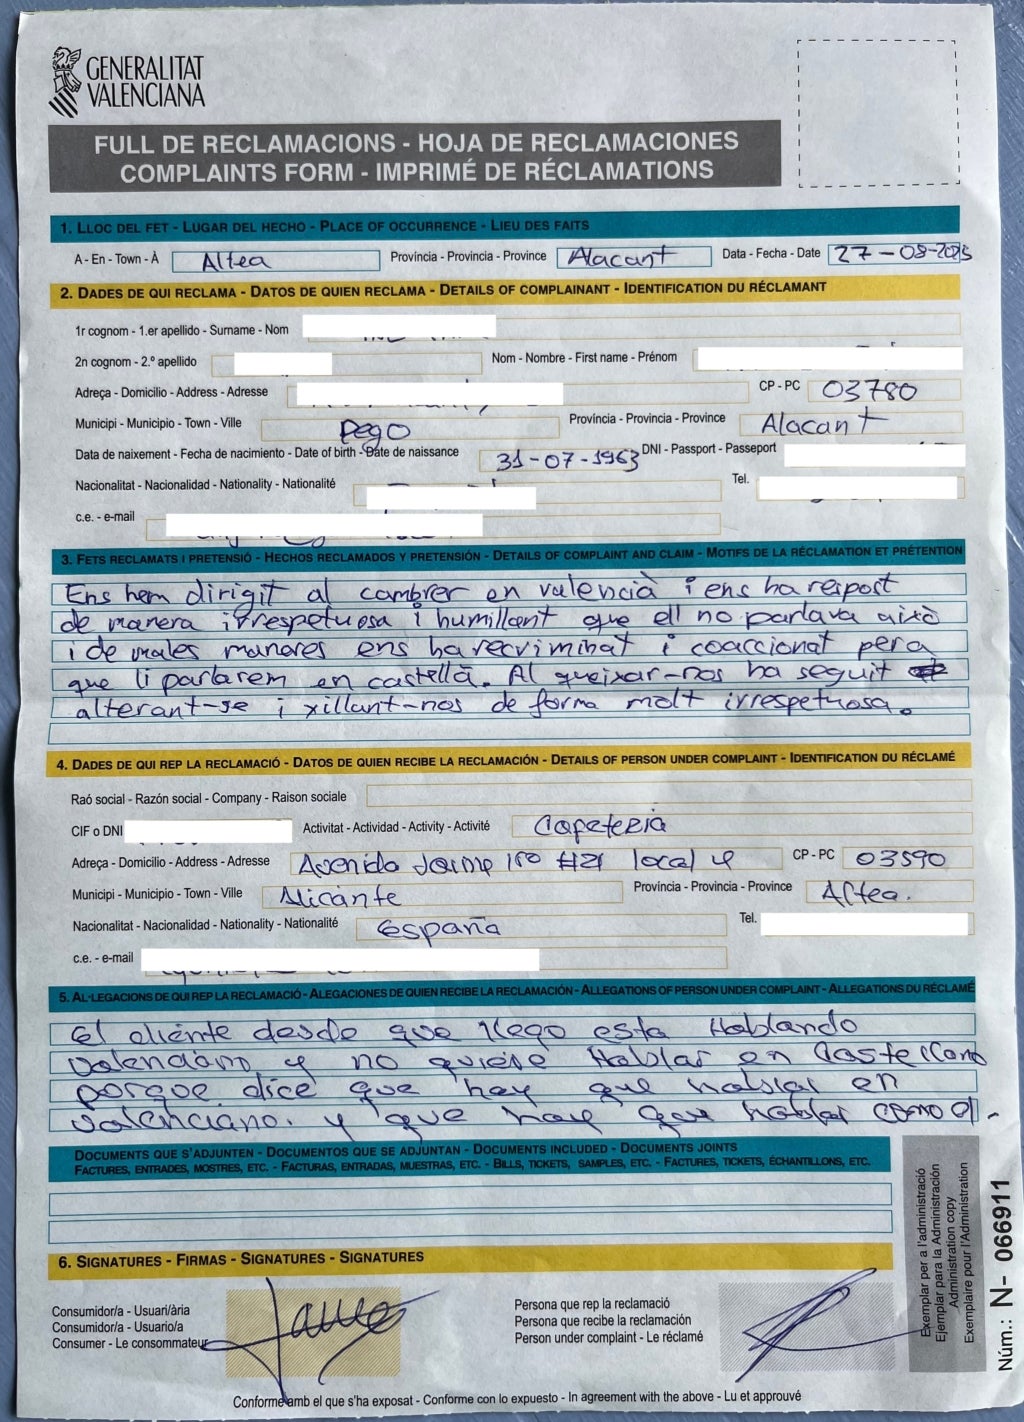 GENERALITAT
VALENCIANA
FULL DE RECLAMACIONS - HOJA DE RECLAMACIONES
COMPLAINTS FORM - IMPRIMÉ DE RÉCLAMATIONS
1. LLOC DEL FET - LUGAR DEL HECHO - PLACE OF OCCURRENCE - LIEU DES FAITS
A - En - Town - À Altea Província - Provincia - Province Alacant Data - Fecha - Date 27-08-2025
2. DADES DE QUI RECLAMA - DATOS DE QUIEN RECLAMA - DETAILS OF COMPLAINANT - IDENTIFICATION DU RÉCLAMANT
1r cognom - 1.er apellido - Surname - Nom
2n cognom - 2.º apellido Nom - Nombre - First name - Prénom
Adreça - Domicilio - Address - Adresse CP - PC 03780
Municipi - Municipio - Town - Ville Pego Província - Provincia - Province Alacant
Data de naixement - Fecha de nacimiento - Date of birth - Date de naissance 31-07-1963 DNI - Passport - Passeport
Nacionalitat - Nacionalidad - Nationality - Nationalité Tel.
c.e. - e-mail
3. FETS RECLAMATS I PRETENSIÓ - HECHOS RECLAMADOS Y PRETENSIÓN - DETAILS OF COMPLAINT AND CLAIM - MOTIFS DE LA RÉCLAMATION ET PRÉTENTION
Ens hem dirigit al cambrer en valencià i ens ha respost
de manera irrespetuosa i humillant que ell no parlava això
i de males maneres ens ha recriminat i coaccionat pera
que li parlarem en castellà. Al queixar-nos ha seguit
alterant-se i xillant-nos de forma molt irrespetuosa.
4. DADES DE QUI REP LA RECLAMACIÓ - DATOS DE QUIEN RECIBE LA RECLAMACIÓN - DETAILS OF PERSON UNDER COMPLAINT - IDENTIFICATION DU RÉCLAMÉ
Raó social - Razón social - Company - Raison sociale
CIF o DNI Activitat - Actividad - Activity - Activité Cafeteria
Adreça - Domicilio - Address - Adresse Avenida Jaime 1ro #21 local 4 CP - PC 03590
Municipi - Municipio - Town - Ville Alicante Província - Provincia - Province Altea.
Nacionalitat - Nacionalidad - Nationality - Nationalité España Tel.
c.e. - e-mail
5. AL·LEGACIONS DE QUI REP LA RECLAMACIÓ - ALEGACIONES DE QUIEN RECIBE LA RECLAMACIÓN - ALLEGATIONS OF PERSON UNDER COMPLAINT - ALLEGATIONS DU RÉCLAMÉ
El cliente desde que llego esta Hablando
valenciano y no quiere Hablar en Castellano
porque dice que hay que hablar en
valenciano. y que hay que hablar como el.
DOCUMENTS QUE S'ADJUNTEN - DOCUMENTOS QUE SE ADJUNTAN - DOCUMENTS INCLUDED - DOCUMENTS JOINTS
FACTURES, ENTRADES, MOSTRES, ETC. - FACTURAS, ENTRADAS, MUESTRAS, ETC. - BILLS, TICKETS, SAMPLES, ETC. - FACTURES, TICKETS, ÉCHANTILLONS, ETC.
6. SIGNATURES - FIRMAS - SIGNATURES - SIGNATURES
Consumidor/a - Usuari/ària
Consumidor/a - Usuario/a
Consumer - Le consommateur
Persona que rep la reclamació
Persona que recibe la reclamación
Person under complaint - Le réclamé
Conforme amb el que s'ha exposat - Conforme con lo expuesto - In agreement with the above - Lu et approuvé
Exemplar per a l'administració
Ejemplar para la Administración
Administration copy
Exemplaire pour l'Administration
Núm.: N- 066911